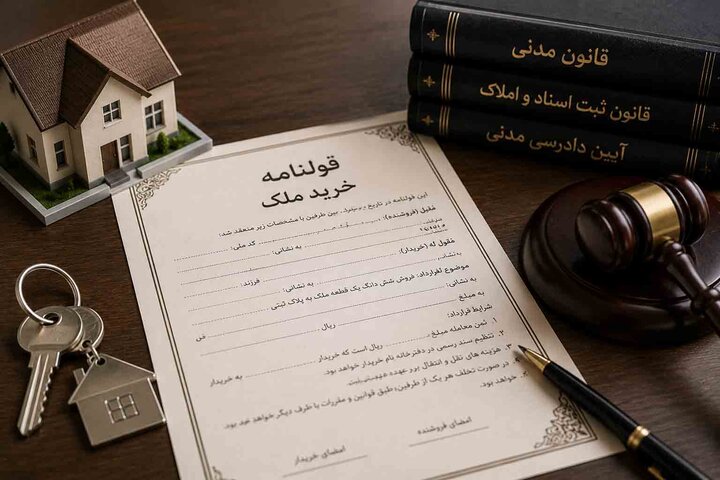 قانون مدنی
قانون ثبت اسناد و املاک
آیین دادرسی مدنی
قولنامه
خرید ملک
این قولنامه در تاریخ بین طرفین با مشخصات زیر منعقد شد:
(فروشنده): کد ملی:
به نشانی:
(خریدار):
به نشانی: فرزند:
موضوع قرارداد: فروش شش دانگ یک قطعه ملک به پلاک ثبتی
به نشانی:
به مبلغ ریال فی
شرایط قرارداد:
۱. ثمن معامله مبلغ ریال است که خریدار به خریدار
۲. تنظیم سند رسمی در دفترخانه نام خریدار خواهد بود.
۳. هزینه های نقل و انتقال بر عهده
در صورت تخلف هر یک از طرفین، طبق قوانین و مقررات با طرف دیگر خواهد بود.
خواهد بود.
امضای فروشنده
امضای خریدار